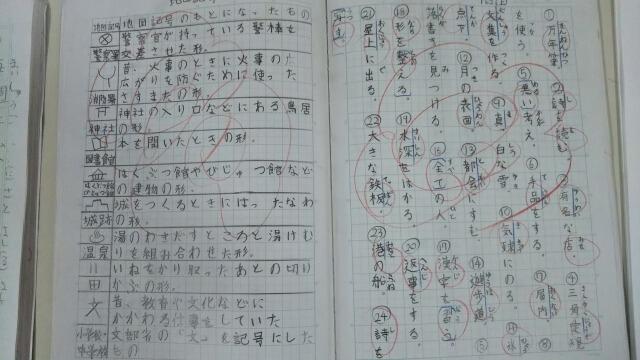 地図記号 地図記号のもとになったもの
警察官が持っている警棒を
警察署 交差させた形。
昔、火事のときに火事の
広がりを防ぐために使った
消防署 さすまたの形。
神社の入り口などにある鳥居
神社 の形。
本を開いたときの形。
図書館
はくぶつ館やびじゅつ館など
の建物の形。
城をつくるときにはったなわ
城跡 の形。
湯のわきだすところと湯けむ
温泉 りを組み合わせた形。
いねをかり取ったあとの切り
田 かぶの形。
昔、教育や文化などに
かかわる仕事をしていた
小学校・中学校 文部省の「文」を記号にした
もの
① 万年筆
を使う。
文集を作る。
⑤ 悪い考え。
点下
落書を見つける。
⑫ 月の表面。
④ 真白な雪
⑥ 手品をする。
有名な店。
⑬ 都会にすむ。
⑩ 気球にのる。
⑱ 形を整える。
⑲ 水深をはかる。
全ての人。
遊歩道
漢字を習う。
⑳ 返事をする。
㉑ 屋上に出る。
㉒ 大きな鉄板。
㉓ 港の船。
㉔ 詩を